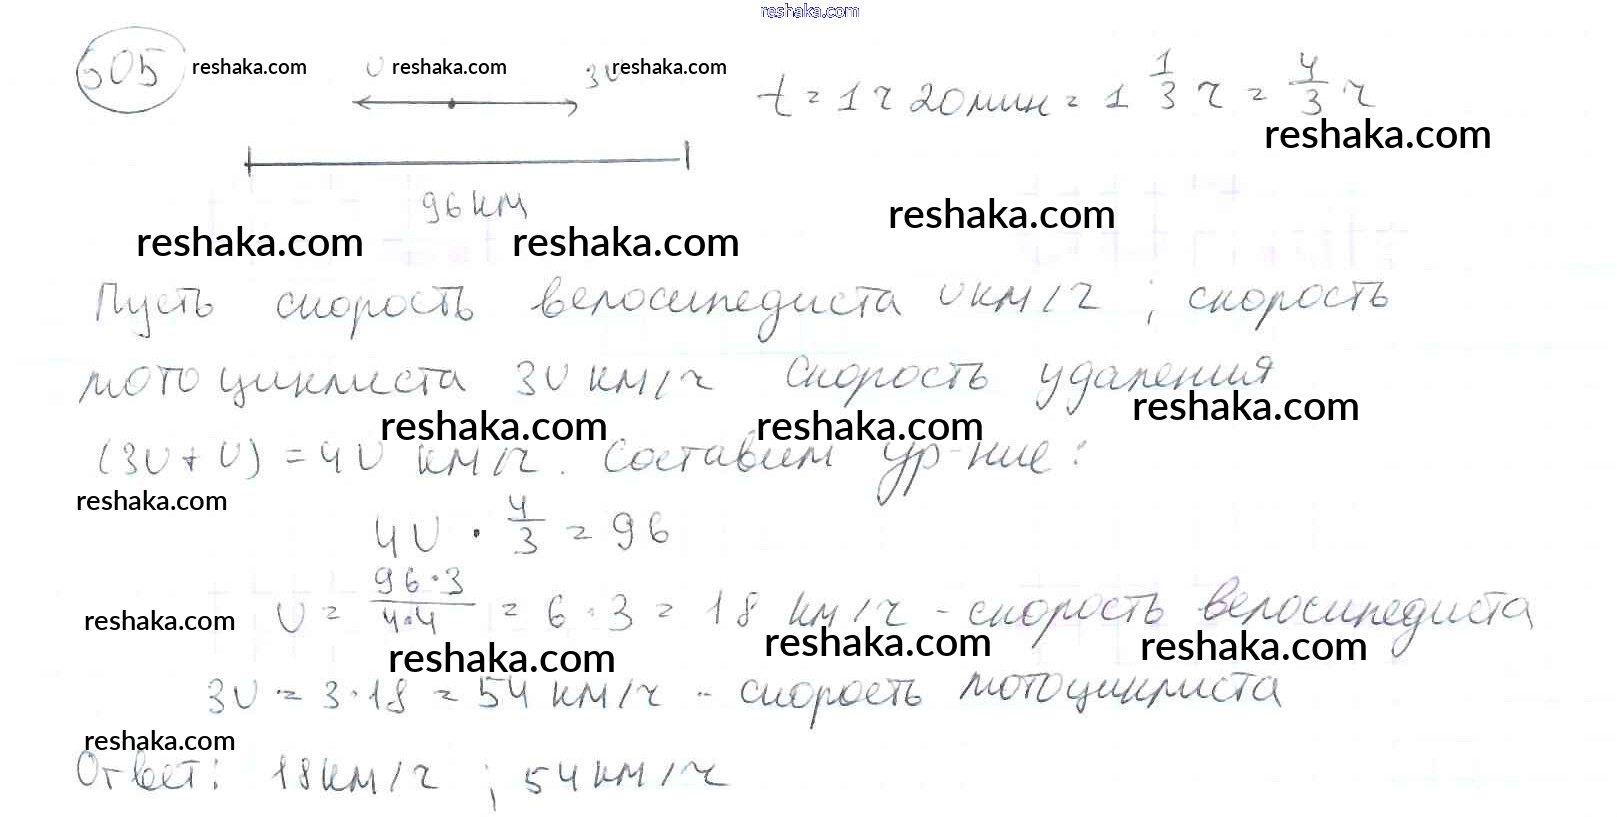 reshaka.com
605 reshaka.com υ reshaka.com 3υ reshaka.com
t = 1 ч 20 мин = 1 1/3 ч = 4/3 ч
reshaka.com
96 км
reshaka.com
reshaka.com reshaka.com
Пусть скорость велосипедиста υ км/ч ; скорость
мотоциклиста 3υ км/ч Скорость удаления
reshaka.com reshaka.com reshaka.com
(3υ + υ) = 4υ км/ч. Составим ур-ние:
reshaka.com
4υ · 4/3 = 96
reshaka.com
υ = 96·3/4·4 = 6 · 3 = 18 км/ч - скорость велосипедиста
reshaka.com reshaka.com reshaka.com
3υ = 3·18 = 54 км/ч - скорость мотоциклиста
reshaka.com
Ответ: 18 км/ч ; 54 км/ч